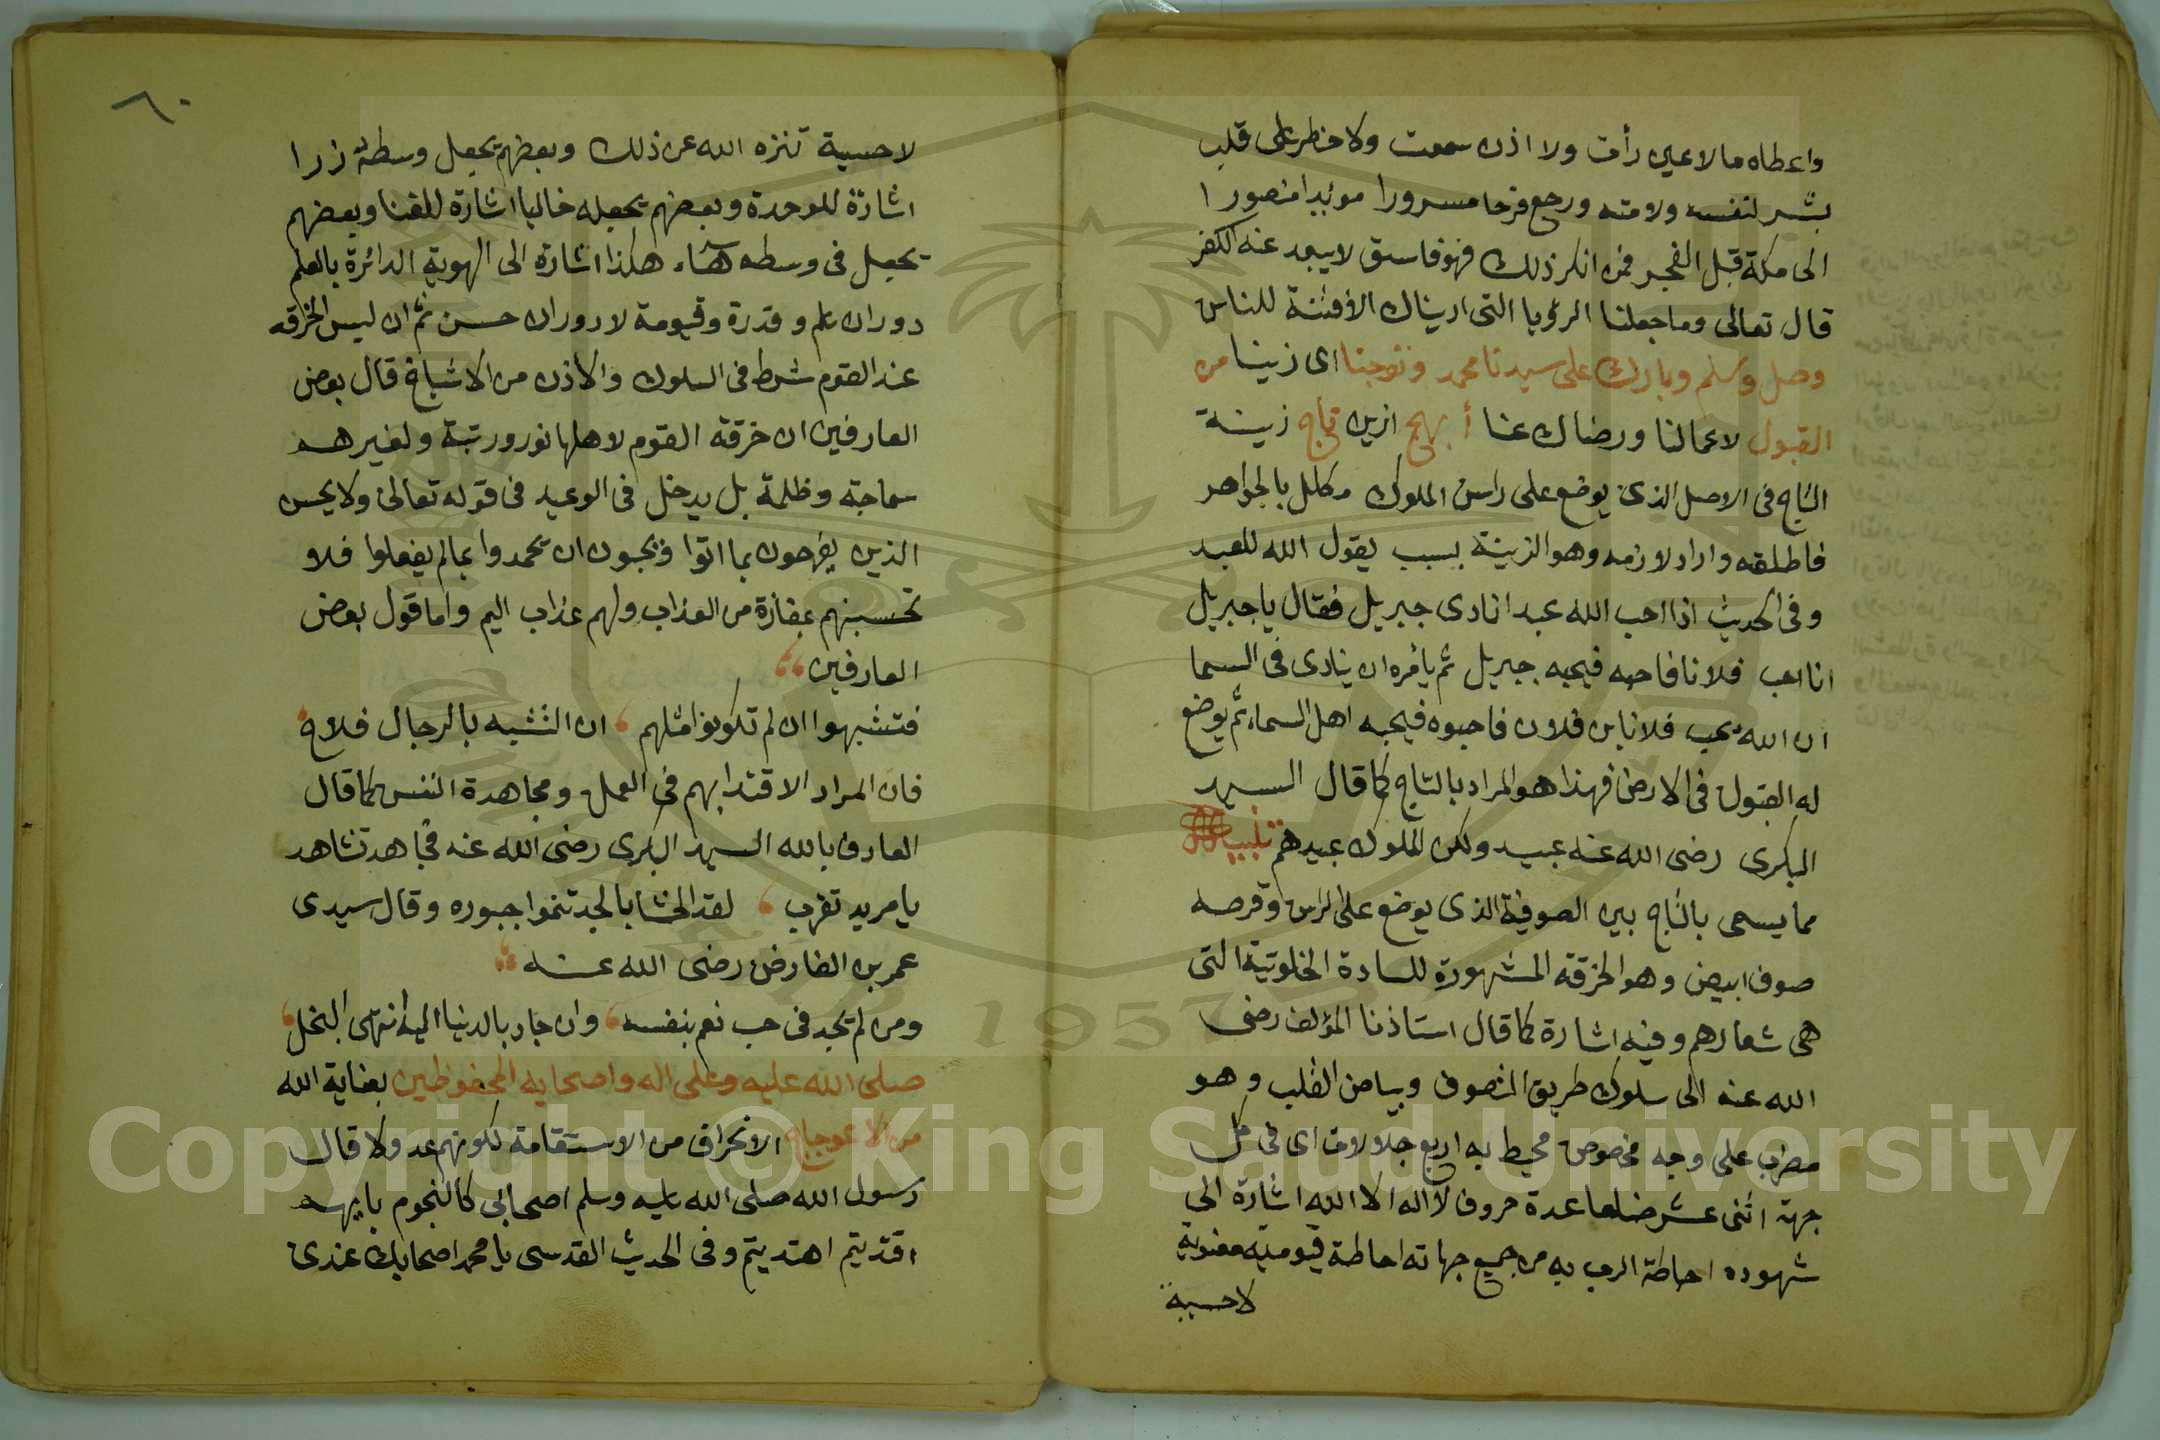 واعطاه ما لا عين رأت ولا اذن سمعت ولا خطر على قلب
بشر لنفسه ولامته ورجع فرحا مسرورا مؤيدا منصورا
الى مكة قبل الفجر فمن انكر ذلك فهو فاسق لا يبعد عنه الكفر
قال تعالى وما جعلنا الرؤيا التى اريناك الا فتنة للناس
وصل وسلم وبارك على سيدنا محمد وتوجنا اى زينا من
القبول لاعمالنا ورضاك عنا أبهج ازين تاج زينة
التاج فى الاصل الذى يوضع على راس الملوك مكلل بالجواهر
فاطلقه واراد لازمه وهو الزينة بسبب يقول الله للعبد
وفى الحديث اذا احب الله عبدا نادى جبريل فقال يا جبريل
انا احب فلانا فاحبه فيحبه جبريل ثم يأمره ان ينادى فى السما
ان الله يحب فلانا بن فلان فاحبوه فيحبه اهل السماء ثم يوضع
له القبول فى الارض فهذا هو المراد بالتاج كما قال السيد
البكرى رضى الله عنه عبيد ولكن الملوك عبيدهم تنبيه
مما يسمى بالتاج بين الصوفية الذى يوضع على الراس وقرصه
صوف ابيض وهو الخرقة المشهورة للسادة الخلوتية التى
هى شعارهم وفيه اشارة كما قال استاذنا المؤلف رضى
الله عنه الى سلوك طريق التصوف وبياض القلب وهو
مضرب على وجه مخصوص محيط به اربع جلالات اى فى كل
جهة اثنى عشر ضلعا عدة حروف لا اله الا الله اشارة الى
شهوده احاطة الرب به من جميع جهاته احاطة قيومية معنوية
لا حسية
٦٠
لا حسية تنزه الله عن ذلك وبعضهم يجعل وسطه زرا
اشارة للوحدة وبعضهم يجعله خاليا اشارة للفنا وبعضهم
يجعل فى وسطه هاء هكذا اشارة الى الهوية الدائرة بالعلم
دوران علم وقدرة وقيومة لا دوران حسن ثم ان لبس الخرقه
عند القوم شرط فى السلوك والاذن من الاشياخ قال بعض
العارفين ان خرقة القوم لاهلها نور ورتبة ولغيرهم
سماجة وظلمة بل يدخل فى الوعيد فى قوله تعالى ولا يحسن
الذين يفرحون بما اتوا ويحبون ان يحمدوا بما لم يفعلوا فلا
تحسبنهم بمفازة من العذاب ولهم عذاب اليم واما قول بعض
العارفين
فتشبهوا ان لم تكونوا مثلهم ان التشبه بالرجال فلاح
فان المراد الاقتدا بهم فى العمل ومجاهدة النفس كما قال
العارف بالله السيد البكرى رضى الله عنه فجاهد تشاهد
يا مريد تقرب لقد بالجد تنحوا حبوره وقال سيدى
عمر بن الفارض رضى الله عنه
ومن لم يجد فى حب نعم بنفسه وان جاد بالدنيا اليه انتهى البخل
صلى الله عليه وعلى اله واصحابه المحفوظين بعناية الله
من الاعوجاج الانحراف من الاستقامة لكونهم عدولا قال
رسول الله صلى الله عليه وسلم اصحابى كالنجوم بايهم
اقتديتم اهتديتم وفى الحديث القدسى يا محمد اصحابك عندى
Copyright © King Saud University
1957